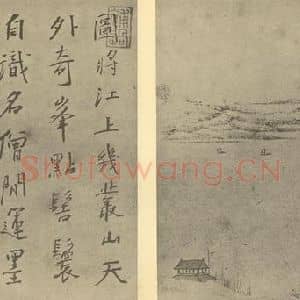 圖將江上幾叢山天
外奇峯點髻鬟
自識名僧閒運墨
Shufawang.CN